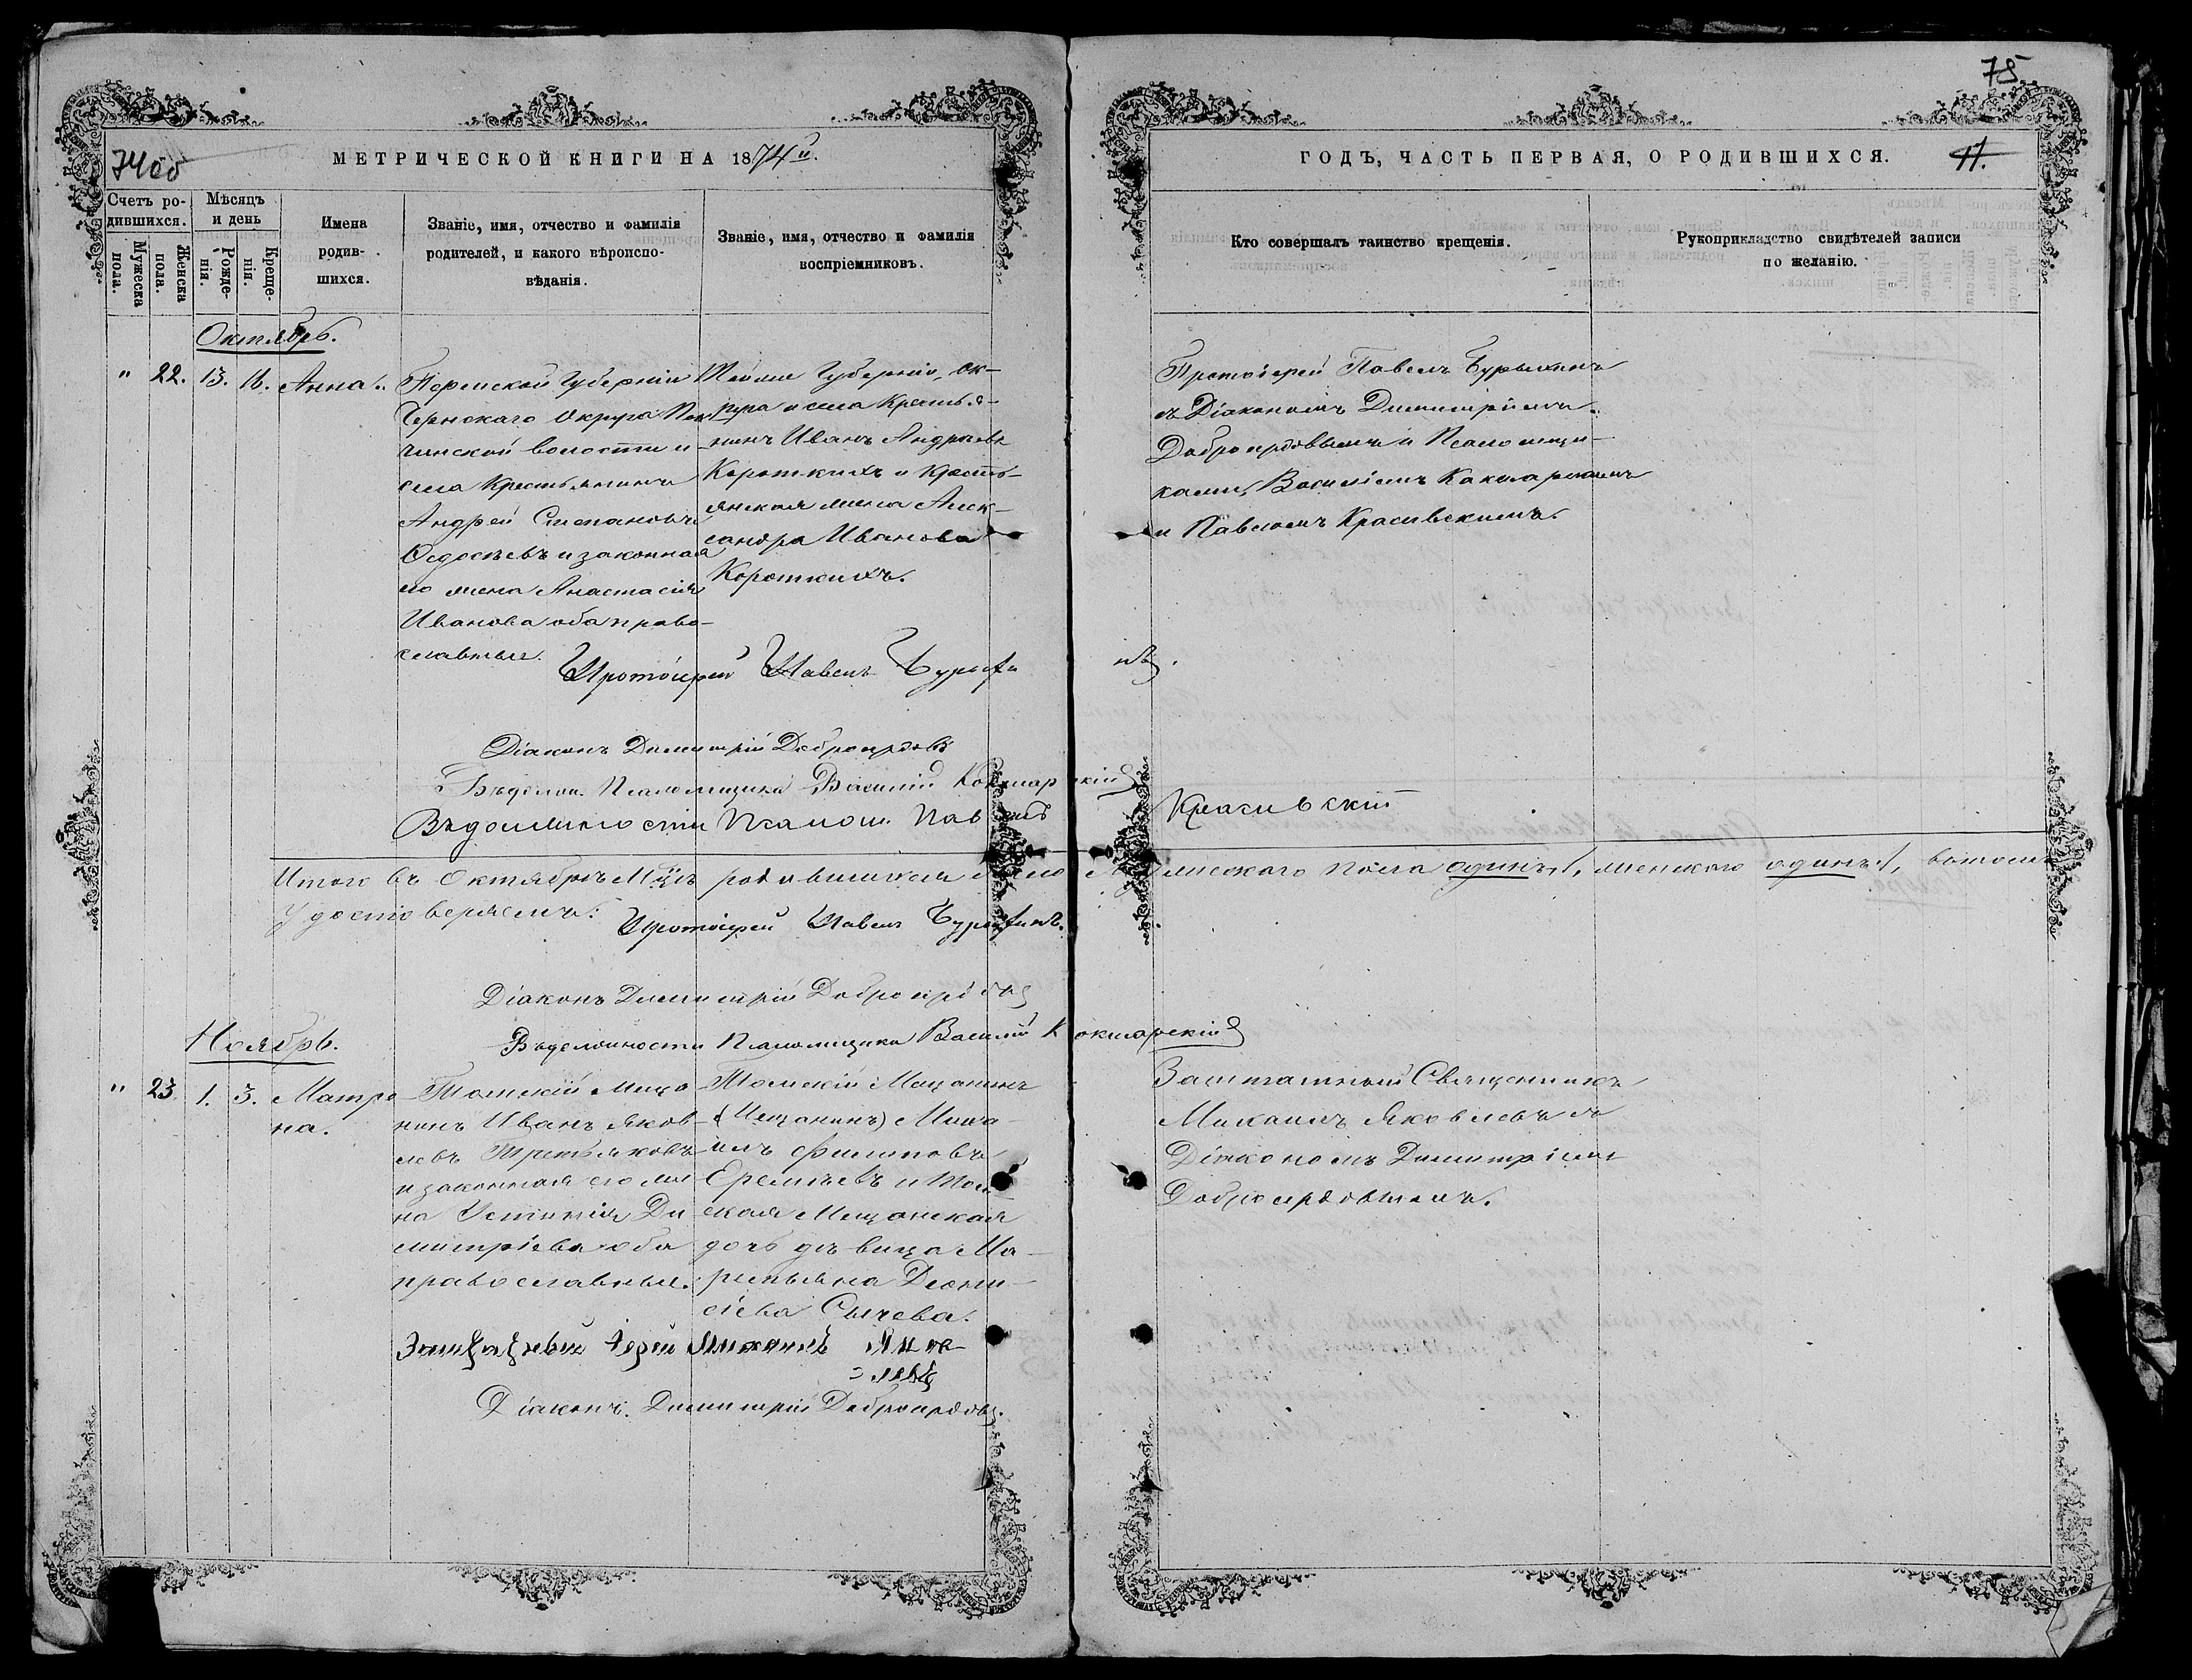 75
74об
МЕТРИЧЕСКОЙ КНИГИ НА 1874й.
ГОДЪ, ЧАСТЬ ПЕРВАЯ, О РОДИВШИХСЯ.
11.
Счетъ ро-
дившихся.
Мужеска
пола.
Женска
пола.
Мѣсяцъ
и день
Рожде-
нія.
Креще-
нія.
Имена
родив-
шихся.
Званіе, имя, отчество и фамилія
родителей, и какого вѣроиспо-
вѣданія.
Званіе, имя, отчество и фамилія
воспріемниковъ.
Кто совершалъ таинство крещенія.
Рукоприкладство свидѣтелей записи
по желанію.
Октябрь.
" 22. 13. 16. Анна.
Пермской Губерніи
Чернскаго Округа
чинской волости и
села Крестьянинъ
Андрей Степановъ
Ѳедосѣевъ и законная
его жена Анастасія
Иванова оба право-
славные.
Той же Губерніи, Ок-
руга и села Крестья-
нинъ Иванъ Андреевъ
Короткихъ и Кресть-
янская жена Алек-
сандра Иванова
Короткихъ.
Протоіерей Павелъ Бурыхинъ
съ Діакономъ Димитріемъ
Добросердовымъ и Псаломщи-
ками, Василіемъ Кокшарскимъ
и Павломъ Красивскимъ.
Протоіерей Павелъ Бурыхинъ.
Діаконъ Димитрій Добросердовъ
Псаломщика Василій Кокшарскій
Въ должности Псалом. Павелъ Красивскій
Итого въ Октябрѣ М-цѣ родившихся мужескаго пола одинъ 1, женскаго одинъ 1, въ томъ
удостоверяемъ: Протоіерей Павелъ Бурыхинъ.
Діаконъ Димитрій Добросердовъ
Въ должности Псаломщика Василій Кокшарскій
Ноябрь.
" 23 1. 3. Матре-
на.
Томскій Меща-
нинъ Иванъ Яков-
левъ Третьяковъ
и законная его же-
на Устинія Ди-
митріева оба
православные.
Томскій Мещанинъ
(Мещанинъ) Миха-
илъ Филиповъ
Еремѣевъ и Том-
ская Мещанская
дочь дѣвица Ма-
ремьяна Діони-
сіева Сычева.
Заштатный Священникъ
Михаилъ Яковлевъ съ
Діакономъ Димитріемъ
Добросердовымъ.
Заштатный Іерей Михаилъ Яков-
левъ
Діаконъ Димитрій Добросердовъ.